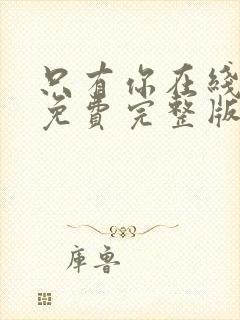 只有你在线
免费完整版
库鲁